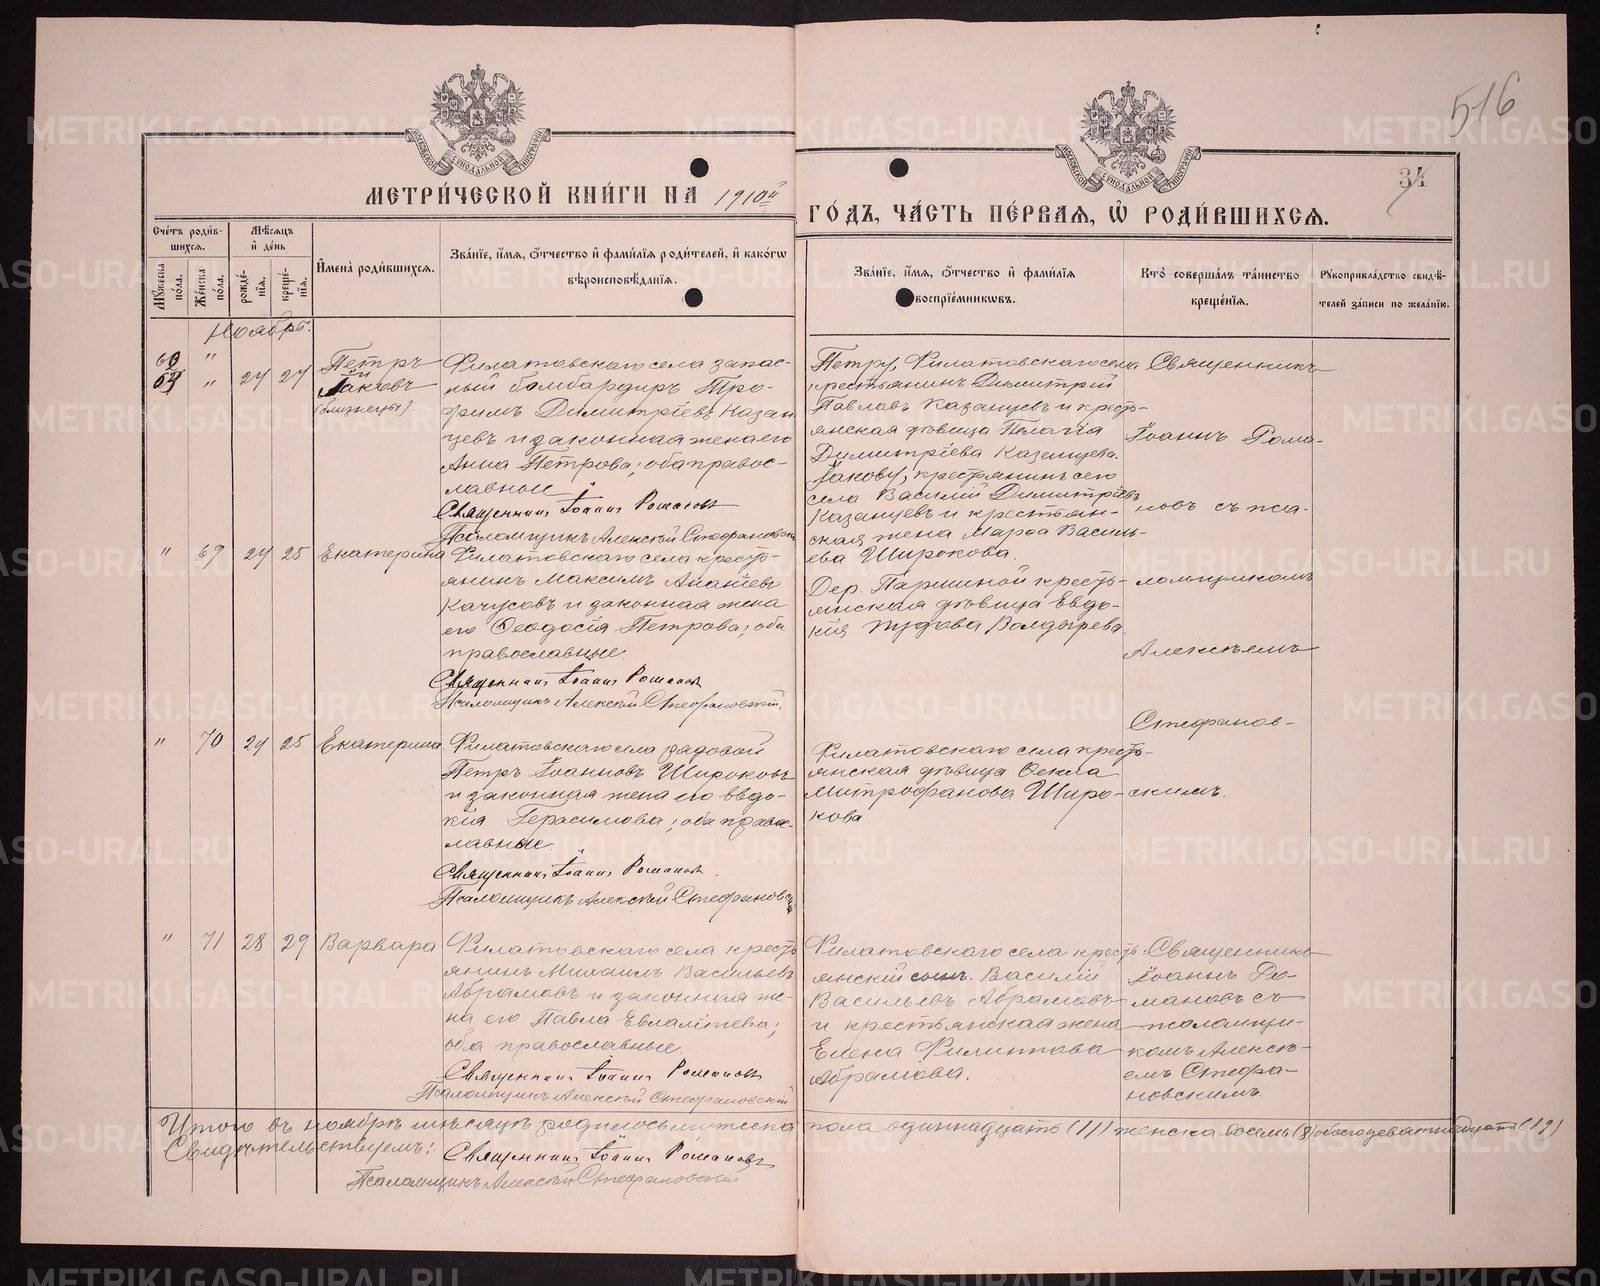 516
34
МОСКОВСКОЙ СѴНОДАЛЬНОЙ ТИПОГРАФІИ
МОСКОВСКОЙ СѴНОДАЛЬНОЙ ТИПОГРАФІИ
МЕТРИ́ЧЕСКОЙ КНИ́ГИ НА 1910й
ГО́ДЪ, ЧА́СТЬ ПЕ́РВАЯ, Ѡ РОДИ́ВШИХСЯ.
Сче́тъ роди́в-
шихся.
Мѣ́сяцъ
и де́нь
Мꙋ́жеска по́ла.
Же́нска по́ла.
рожде́-
нїя.
креще́-
нїя.
Имена̀ роди́вшихся.
Зва́нїе, и́мя, о́тчество и фами́лїя роди́телей, и како́гѡ
вѣроисповѣ́данїя.
Зва́нїе, и́мя, о́тчество и фами́лїя
воспрїе́мникѡвъ.
Кто̀ соверша́лъ та́инство
креще́нїя.
Рꙋкоприкла́дство свидѣ́-
телей за́писи по жела́нїю.
Ноябрь.
60 "
" 24 27
Петръ
и
Іаковъ
(близнецы).
Филатовскаго села запас-
ный бомбардиръ Тро-
фимъ Димитріевъ Казан-
цевъ и законная жена его
Анна Петрова; оба правос-
лавные
Священникъ Іоаннъ Романовъ
Псаломщикъ Алексѣй Стефановскій
Петру, Филатовскаго села
крестьянинъ Димитрій
Павловъ Казанцевъ и кресть-
янская дѣвица Пелагія
Димитріева Казанцева.
Іакову, крестьянинъ сего
села Василій Димитріевъ
Казанцевъ и крестьян-
ская жена Марѳа Василь-
ева Широкова.
Священникъ
Іоаннъ Рома-
новъ съ пса-
ломщикомъ
Алексѣемъ
Стефанов-
скимъ.
" 69 24 25 Екатерина
Филатовскаго села кресть-
янинъ Максимъ Ананіевъ
Качусовъ и законная жена
его Ѳеодосія Петрова; оба
православные.
Священникъ Іоаннъ Романовъ
Псаломщикъ Алексѣй Стефановскій.
Дер. Паршиной кресть-
янская дѣвица Евдо-
кія Болдырева.
" 70 24 25 Екатерина
Филатовскаго села рядовой
Петръ Іоанновъ Широковъ
и законная жена его Евдо-
кія Герасимова; оба правос-
лавные.
Священникъ Іоаннъ Романовъ.
Псаломщикъ Алексѣй Стефановскій
Филатовскаго села кресть-
янская дѣвица Ѳекла
Митрофанова Широ-
кова.
" 71 28 29 Варвара
Филатовскаго села кресть
янинъ Михаилъ Васильевъ
Абрамовъ и законная же-
на его Павла Евлампіева;
оба православные.
Священникъ Іоаннъ Романовъ
Псаломщикъ Алексѣй Стефановскій
Филатовскаго села кресть-
янскій сынъ Василій
Васильевъ Абрамовъ
и крестьянская жена
Елена Филиппова
Абрамова.
Священникъ
Іоаннъ Ро-
мановъ съ
псаломщи-
комъ Алексѣ-
емъ Стефа-
новскимъ.
Итого въ ноябрѣ мѣсяцѣ родилось мужеска пола одиннадцать (11) женска восемь (8) обоего девятнадцать (19)
Свидѣтельствуемъ: Священникъ Іоаннъ Романовъ
Псаломщикъ Алексѣй Стефановскій
METRIKI.GASO-URAL.RU